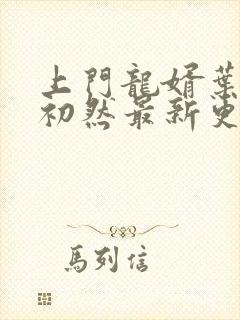 上門龍婿葉
初然最新更
馬列信